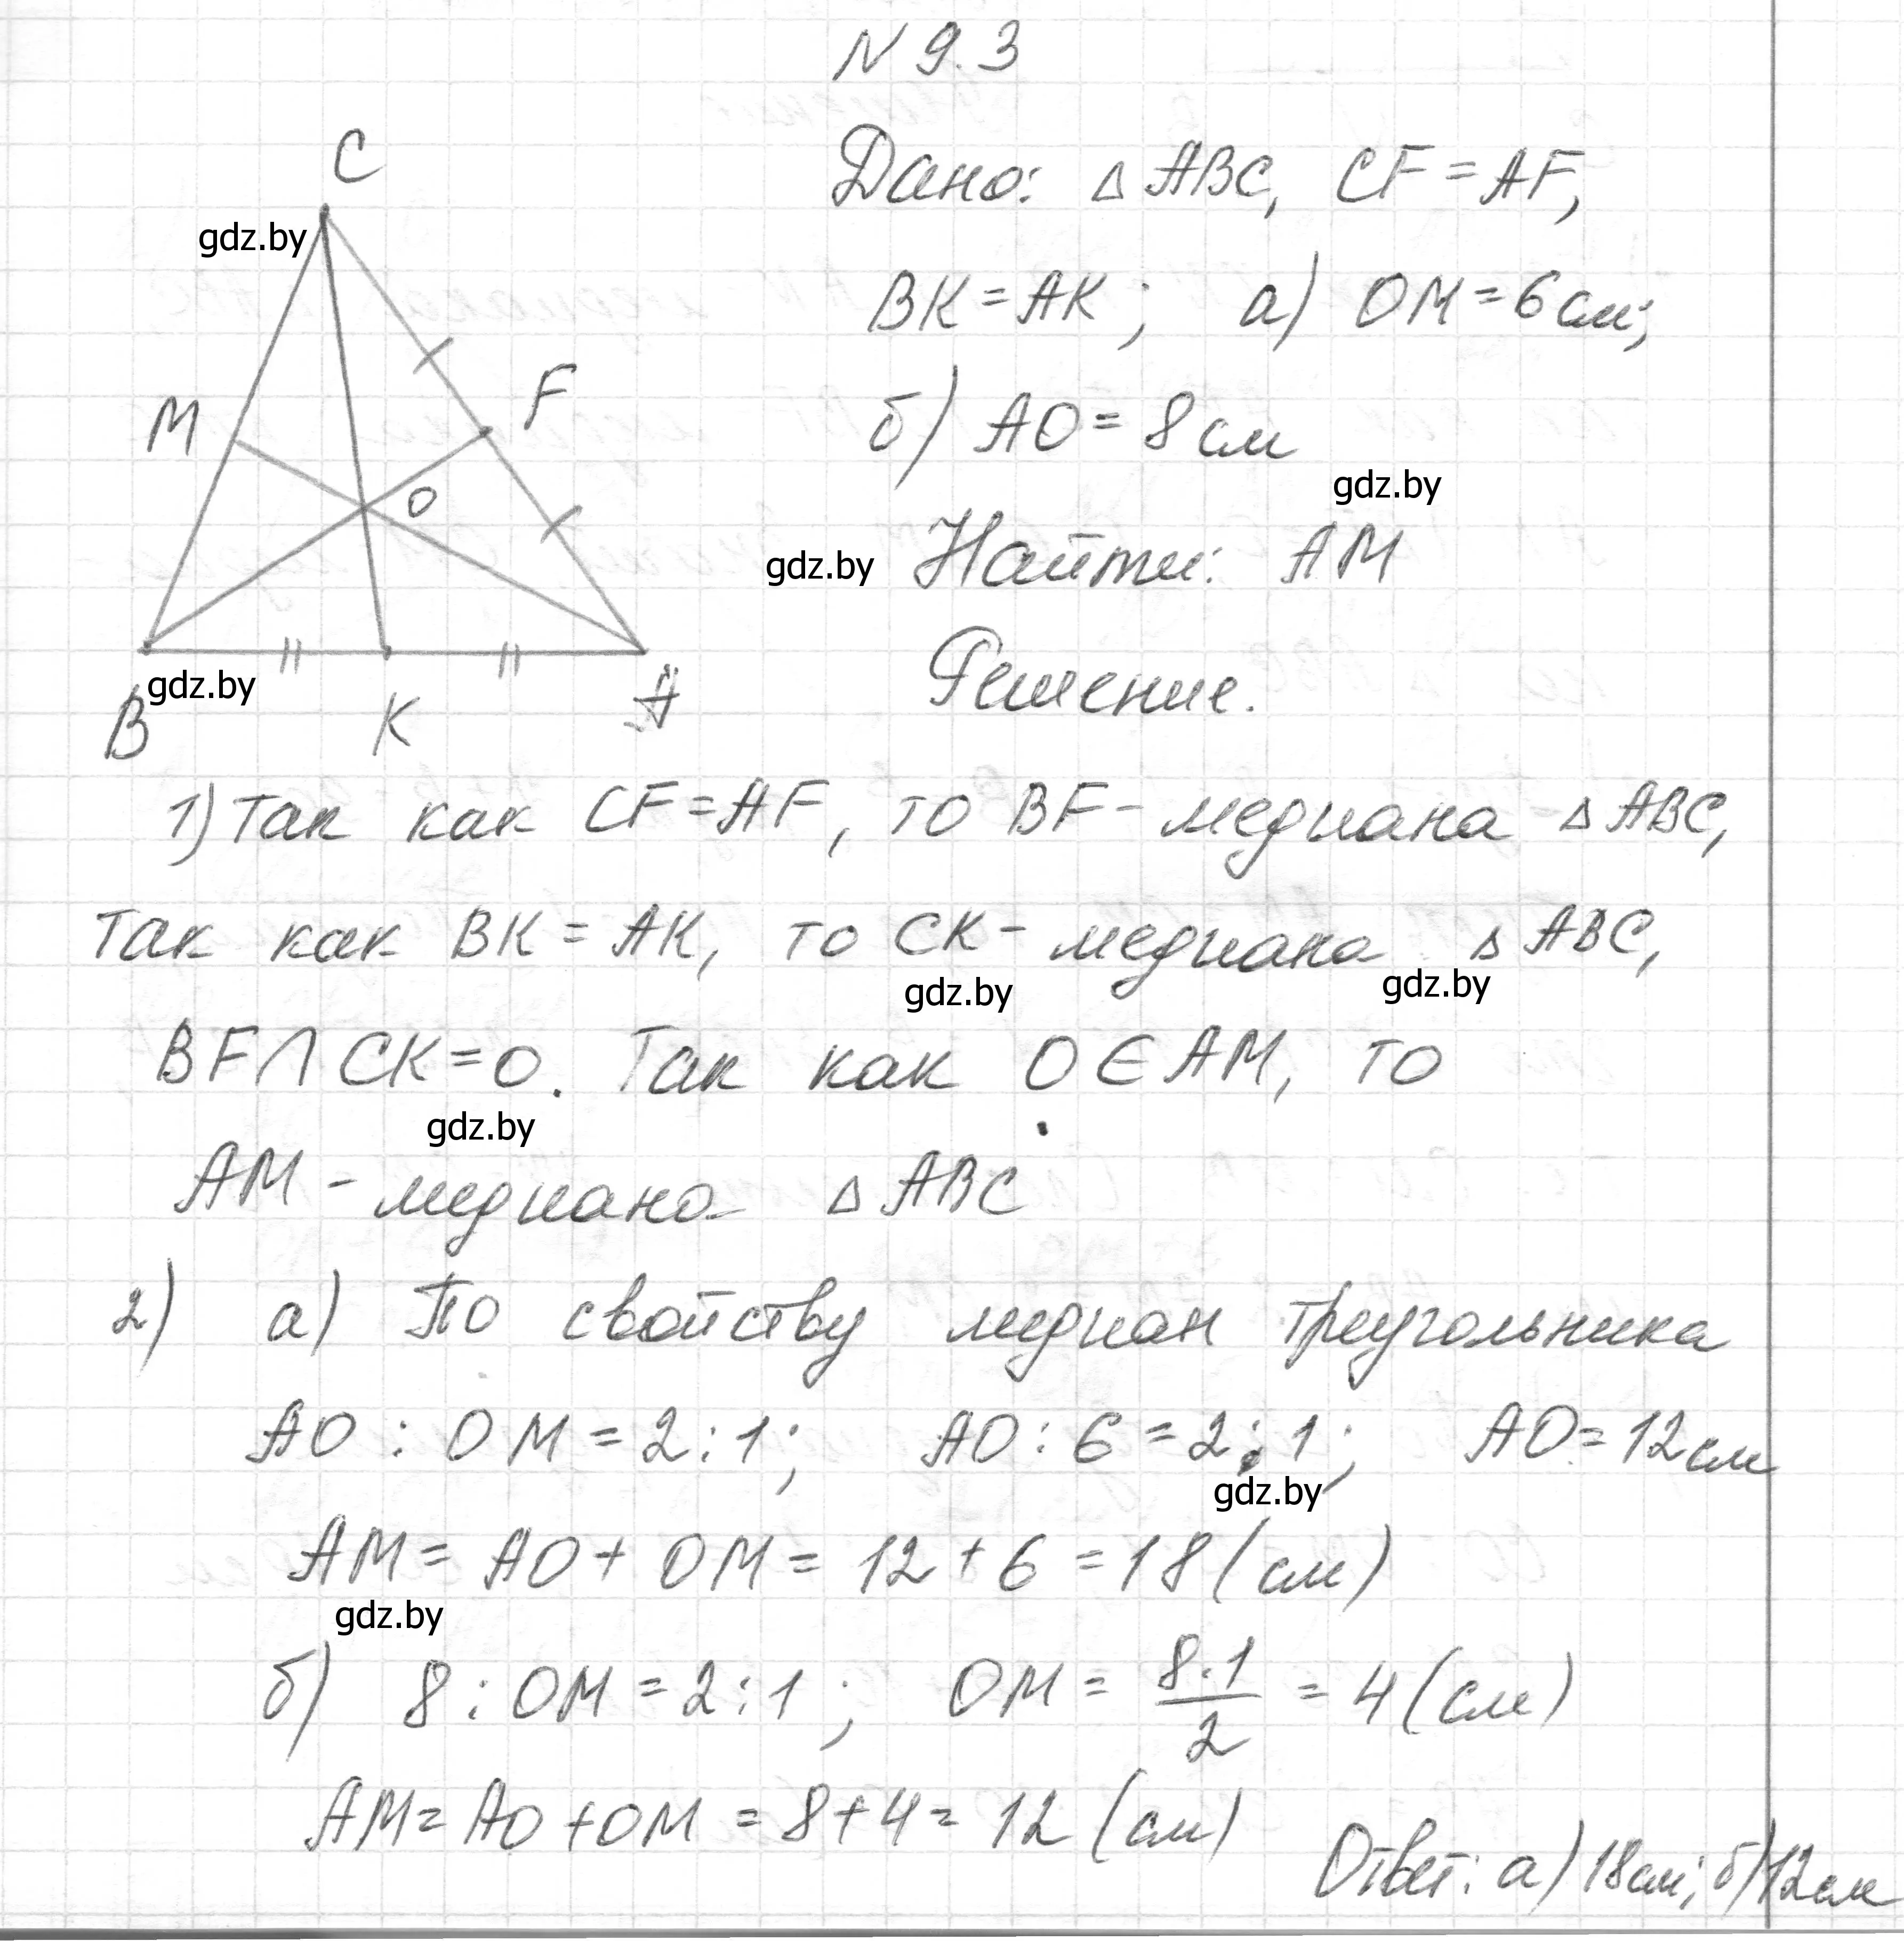 N 9.3
C
gdz.by
M
F
O
gdz.by
B
K
A
Дано: △ ABC, CF = AF,
BK = AK; а) OM = 6 см;
б) AO = 8 см
gdz.by
gdz.by
Найти: AM
Решение.
1) Так как CF = AF, то BF - медиана △ ABC,
так как BK = AK, то CK - медиана △ ABC,
gdz.by
gdz.by
BF ∩ CK = O. Так как O ∈ AM, то
gdz.by
AM - медиана △ ABC
2) а) По свойству медиан треугольника
AO : OM = 2 : 1; AO : 6 = 2 : 1; AO = 12 см
gdz.by
AM = AO + OM = 12 + 6 = 18 (см)
gdz.by
б) 8 : OM = 2 : 1; OM = 8·1/2 = 4 (см)
AM = AO + OM = 8 + 4 = 12 (см)
Ответ: а) 18 см; б) 12 см